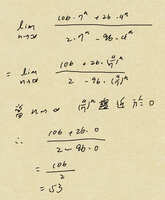 lim n→∞ (106·7ⁿ + 26·4ⁿ) / (2·7ⁿ - 96·4ⁿ)
= lim n→∞ (106 + 26·(4/7)ⁿ) / (2 - 96·(4/7)ⁿ)
當 n→∞ (4/7)ⁿ 趨近於 0
∴ (106 + 26·0) / (2 - 96·0)
= 106 / 2
= 53